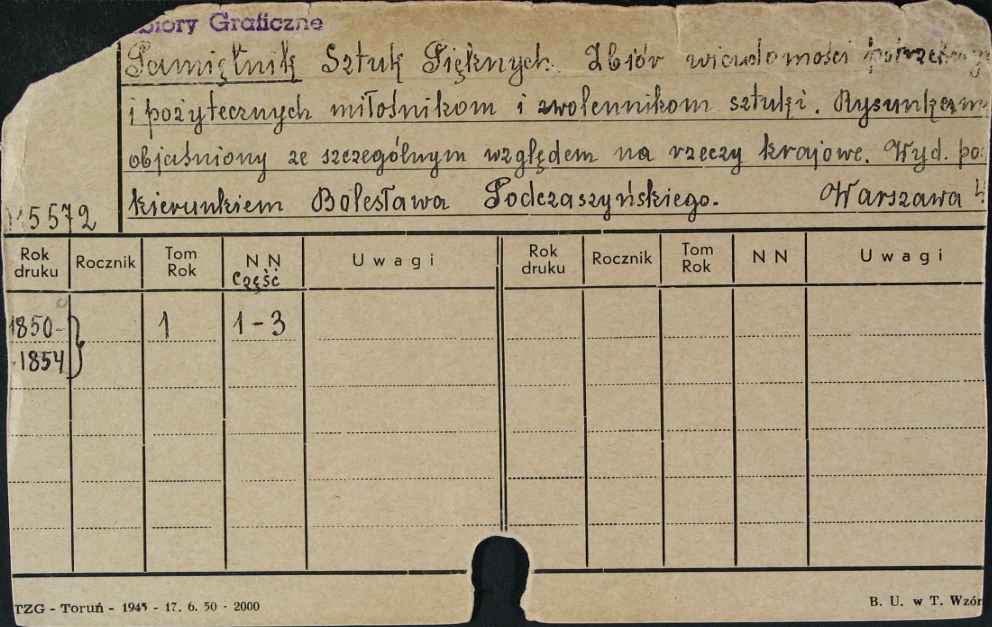 Zbiory Graficzne
Pamiętnik Sztuk Pięknych. Zbiór wiadomości potrzebnych
i pożytecznych miłośnikom i zwolennikom sztuki. Rysunkami
objaśniony ze szczególnym względem na rzeczy krajowe. Wyd. po
kierunkiem Bolesława Podczaszyńskiego. Warszawa
5572
Rok druku Rocznik Tom Rok NN Uwagi Rok druku Rocznik Tom Rok NN Uwagi
Część
1850- 1 1-3
1854
TZG - Toruń - 1945 - 17. 6. 50 - 2000 B. U. w T. Wzór